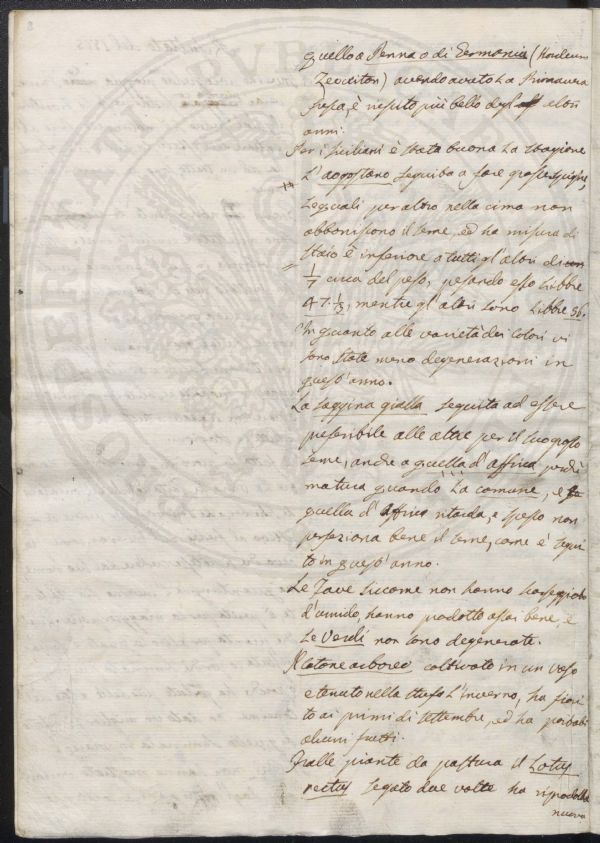 quello a Penna o di Germania (Hordeum
Zeocriton) avendo avuto la Primavera
fresca, è riescito più bello degl' altri
anni.
Per i Siciliani è stata buona la stagione
L'agostano seguita a fare grosse spighe,
le quali per altro nella cima non
abboniscono il seme, ed ha misura di
staio è inferiore a tutti gl'altri di
1/7 circa del peso, pesando esso Libbre
47. 1/3, mentre gl'altri sono Libbre 56.
In quanto alle varietà dei colori vi
sono state meno degenerazioni in
quest'anno.
La saggina gialla seguita ad essere
preferibile alle altre per il suo grosso
seme, anche a quella d'affrica perchè
matura quando la comune, e
quella d'Affrica ritarda, e spesso non
perfeziona bene il seme, come è segui
to in quest'anno.
Le Fave siccome non hanno scarseggiato
d'umido, hanno prodotto assai bene, e
le Verdi non sono degenerate.
Il Cotone arboreo coltivato in un vaso
e tenuto nella stufa l'Inverno, ha fiori
to ai primi di settembre, ed ha portati
alcuni frutti.
Fralle piante da pastura il Lotus
rectus segato due volte ha riprodotta
nuova